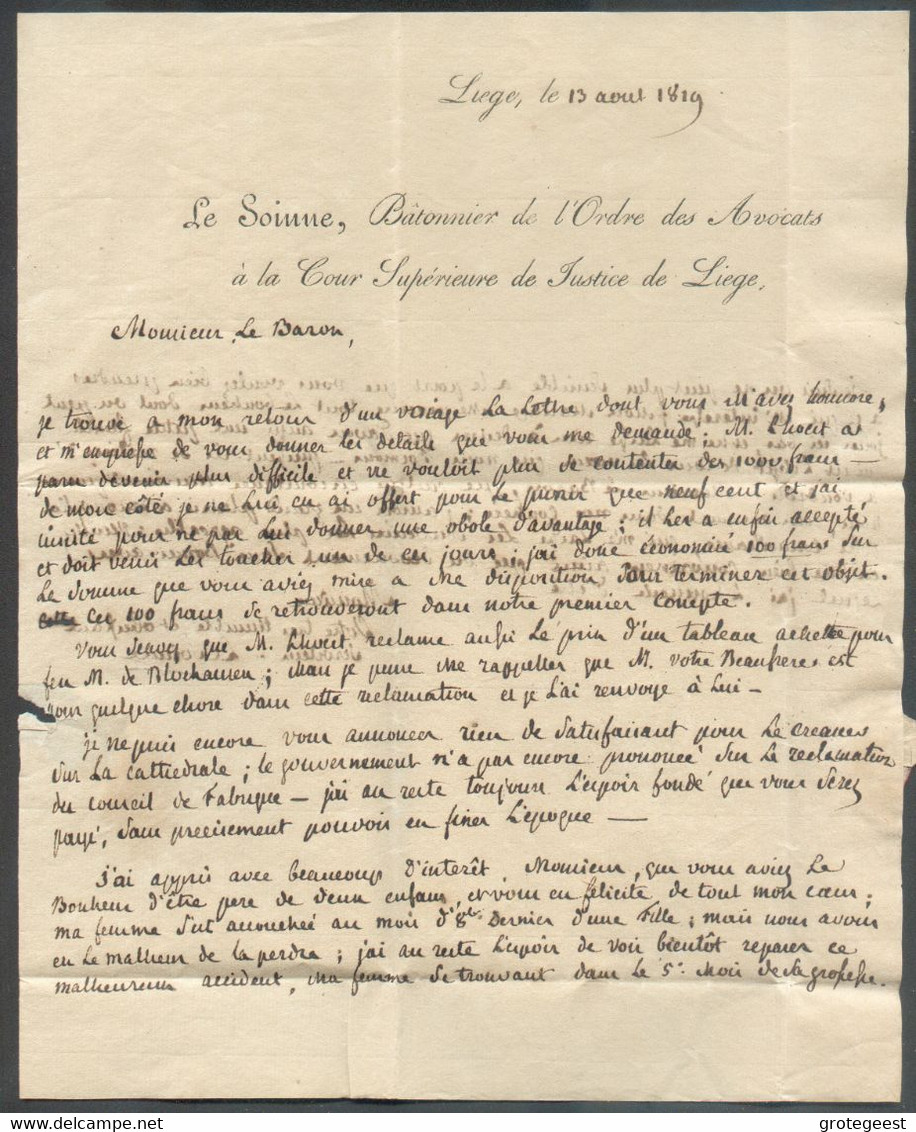 Liege, le 13 aout 1819
Le Soinne, Bâtonnier de l'Ordre des Avocats
à la Cour Supérieure de Justice de Liege,
Monsieur Le Baron,
je trouve a mon retour d'un voiage La Lettre dont vous m'avez honnoré,
et m'empresse de vous donner les details que vous me demandé; M. Lhoest a
paru devenir plus difficile et ne vouloit plus se contenter des 1000 francs —
de mon côté je ne Lui en ai offert pour Le punir que neuf cent, et j'ai
imité pour ne pas Lui donner une obole d'avantage; il Les a enfin accepté
et doit venir Les toucher un de ces jours; j'ai donc économisé 100 francs sur
Le somme que vous aviez mise a ma disposition pour terminer cet objet.
Ces 100 francs se retrouveront dans notre premier compte.
Vous sçavez que M. Lhoest reclame aussi Le prix d'un tableau achetté pour
feu M. de Blochausen; mais je pense me rappeller que M. votre Beaufrere est
pour quelque chose dans cette reclamation et je L'ai renvoyé à Lui —
je ne puis encore vous annoncer rien de satisfaisant pour Le creances
sur La cathédrale; le gouvernement n'a pas encore prononcé sur La reclamation
du conseil de Fabrique — j'ai au reste toujours L'espoir fondé que vous serez
payé, sans precisement pouvoir en fixer L'époque —
j'ai appris avec beaucoup d'interêt, Monsieur, que vous aviez Le
Bonheur d'être pere de deux enfans, et vous en felicite de tout mon cœur;
ma femme s'est accouchée au mois d'8bre Dernier d'une Fille; mais nous avons
eu Le malheur de la perdre; j'ai au reste L'espoir de voir bientôt reparer ce
malheureux accident, ma femme se trouvant dans Le 5e Mois de sa grossesse.
grotegeest